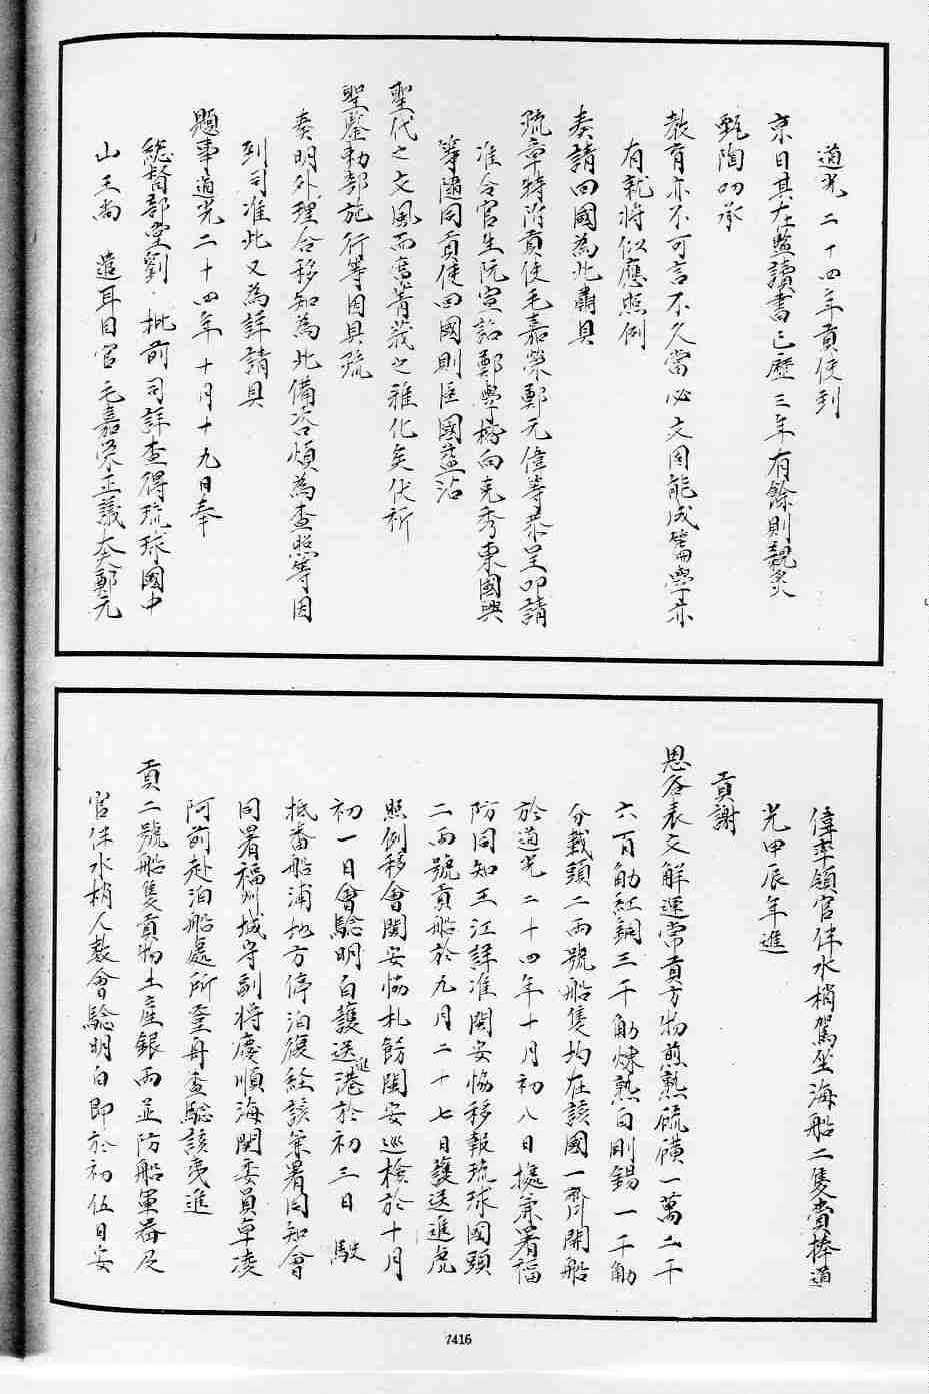 道光二十四年貢使到
京日其在監讀書已歷三年有餘則親炙
甄陶叨承
教育亦不可言不久當必文因能成篇學亦
有就將似應照例
奏請回國為此肅具
疏章特附貢使毛嘉榮鄭元偉等恭呈叩請
准令官生阮宣詔鄭學楷向克秀東國興
等隨同貢使回國則匡國益沾
聖代之文風而奮菁莪之雅化矣伏祈
聖鑒勅部施行等因具疏
奏明外理合移知為此備咨煩為查照等因
到司准此又為詳請具
題事道光二十四年十月十九日奉
總督部堂劉 批前司詳查得琉球國中
山王尚 遣耳目官毛嘉榮正議大夫鄭元
偉率領官伴水梢駕坐海船二隻賫捧道
光甲辰年進
貢謝
恩咨表文解運常貢方物煎熟硫磺一萬二千
六百觔紅銅三千觔煉熟白剛錫一千觔
分載頭二兩號船隻均在該國一齊開船
於道光二十四年十月初八日據兼署福
防同知王江詳准閩安協移報琉球國頭
二兩號貢船於九月二十七日護送進虎
照例移會閩安協札飭閩安巡檢於十月
初一日會驗明白護送進港於初三日 駛
抵番船浦地方停泊復經該兼署同知會
同署福州城守副將慶順海関委員卓凌
阿前赴泊船處所登舟查驗該夷進
貢二號船隻貢物土產銀兩並防船軍器及
官伴水梢人數會驗明白即於初伍日安
7416